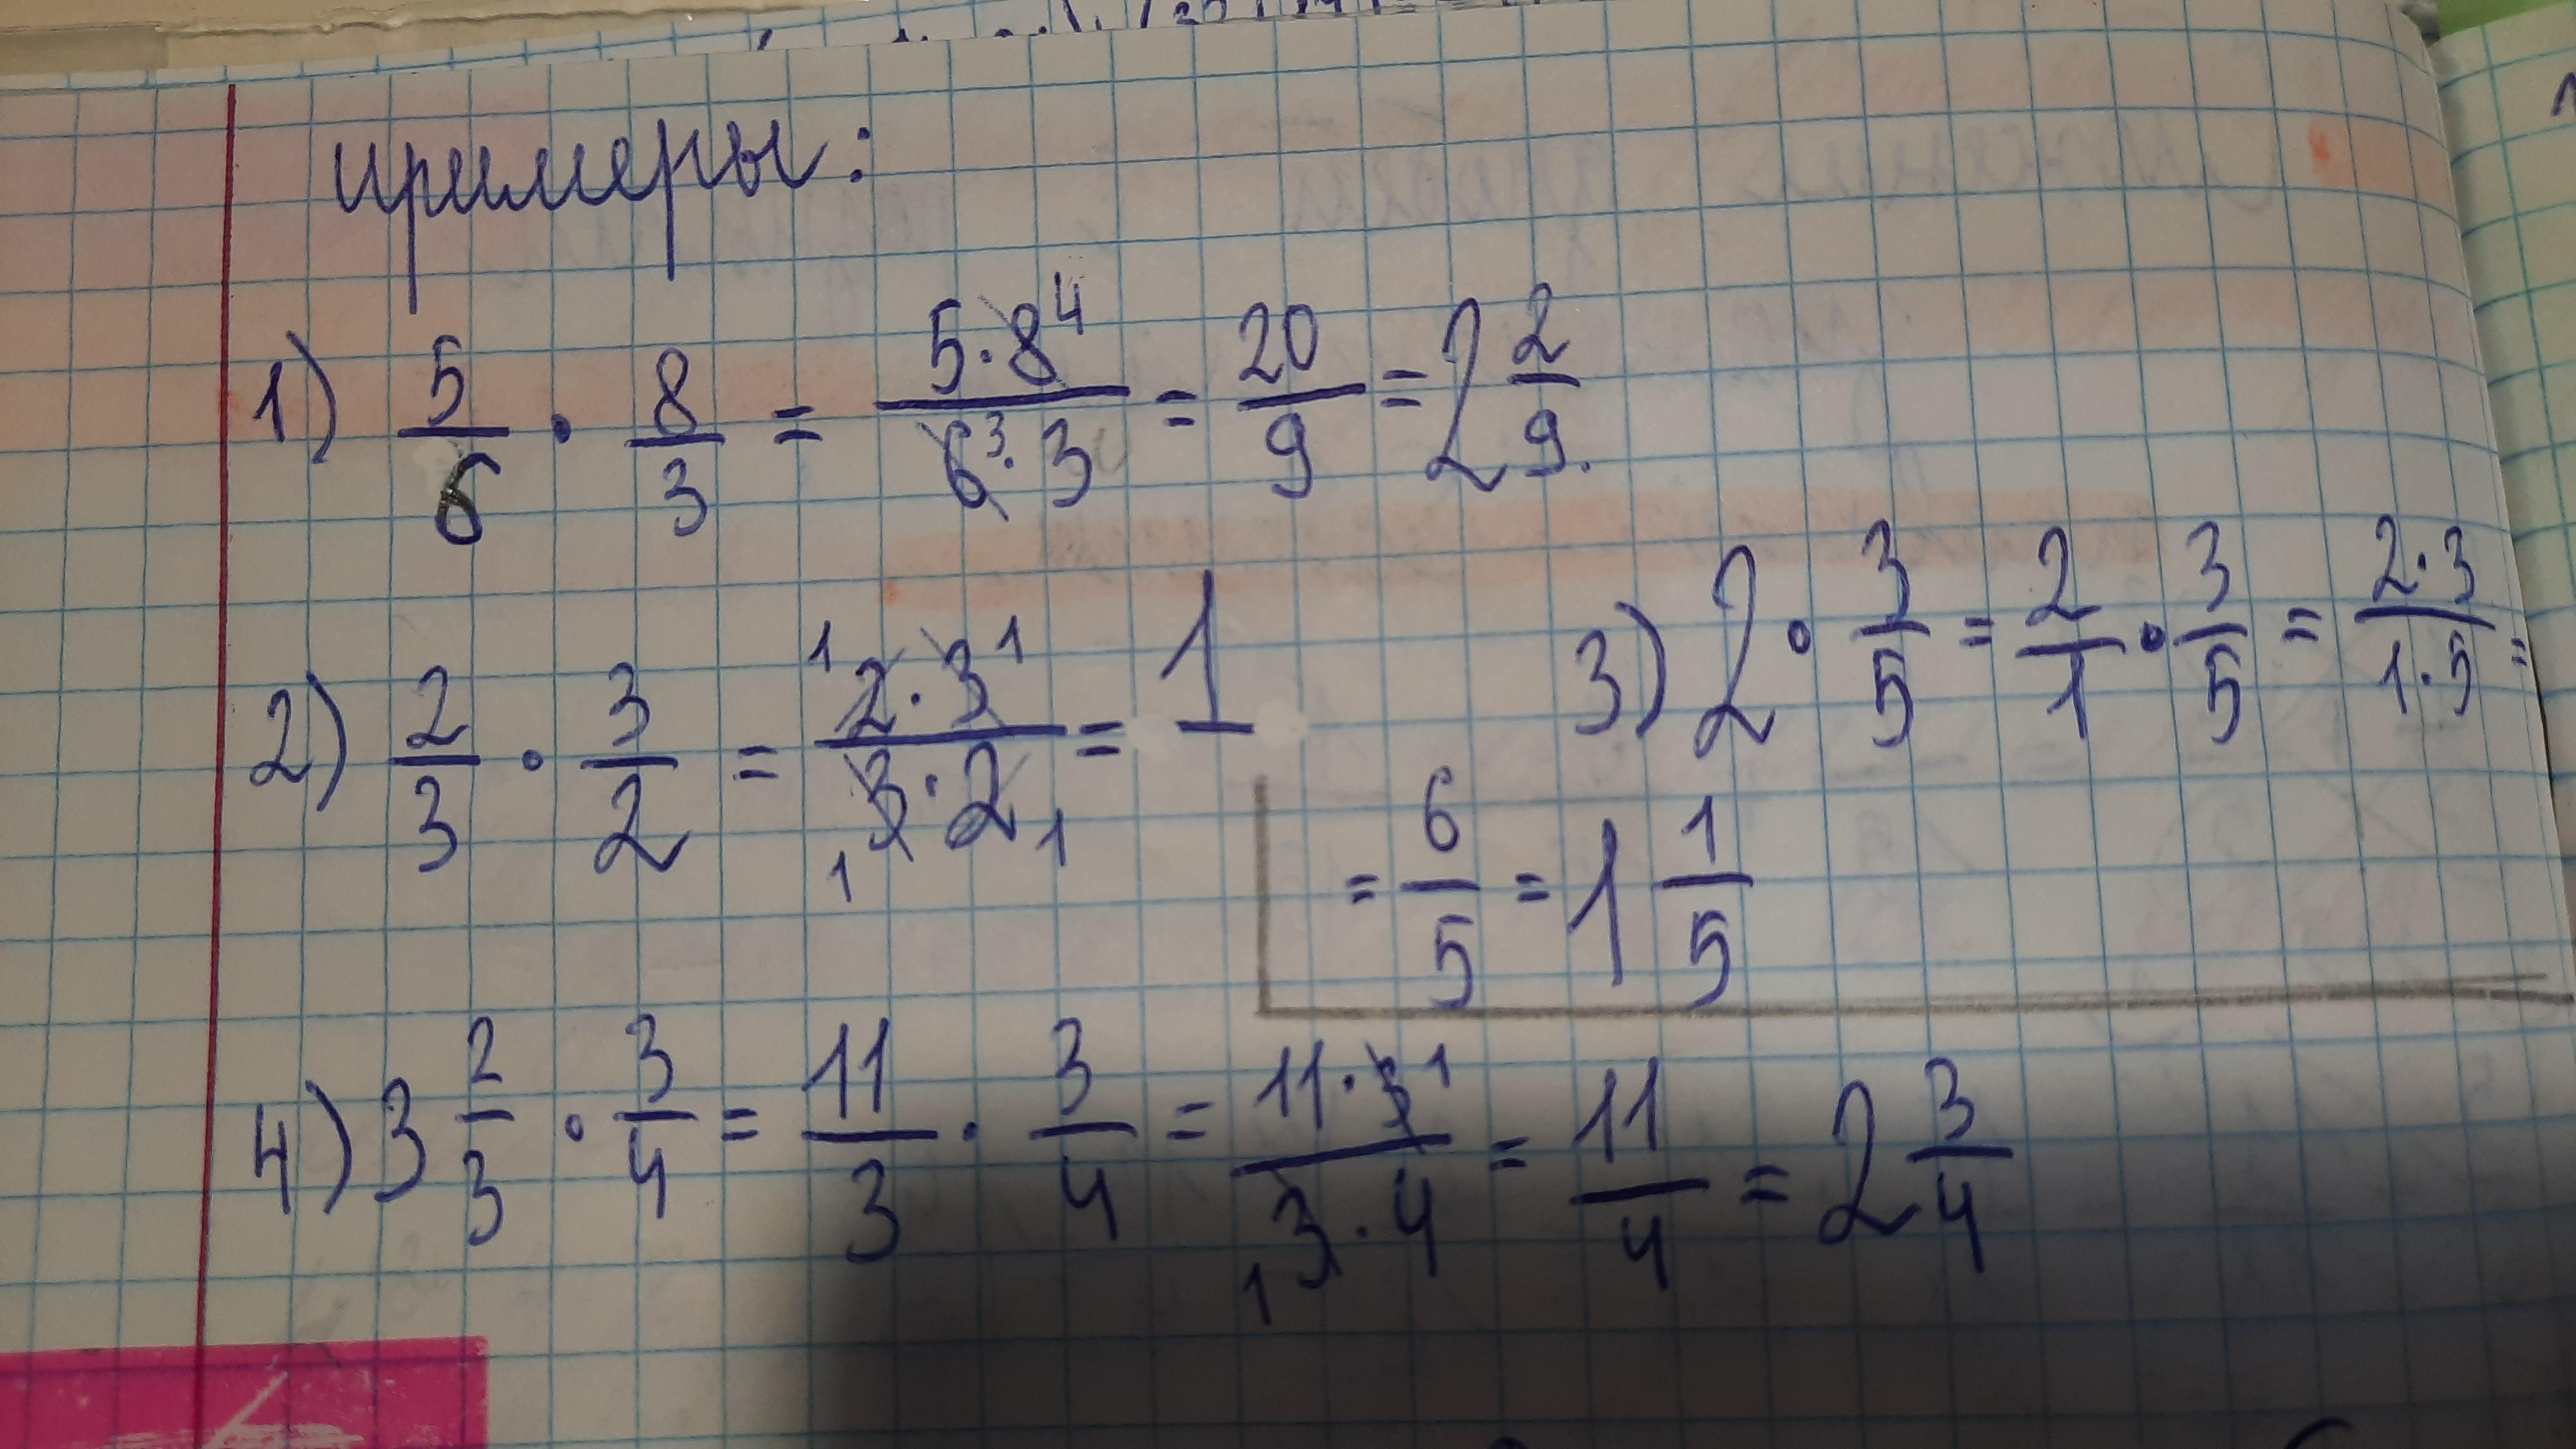 примеры:
1) 5/6 · 8/3 = 5·8⁴/6³·3 = 20/9 = 2 2/9.
2) 2/3 · 3/2 = ¹2·3¹/₁3·2₁ = 1
3) 2 · 3/5 = 2/1 · 3/5 = 2·3/1·5 =
= 6/5 = 1 1/5
4) 3 2/3 · 3/4 = 11/3 · 3/4 = 11·3¹/₁3·4 = 11/4 = 2 3/4